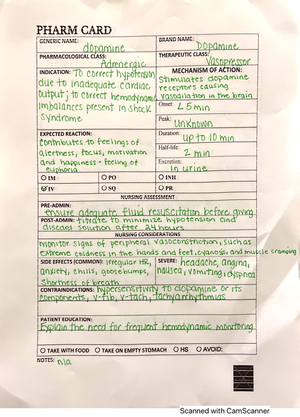 PHARM CARD
GENERIC NAME:
dopamine
BRAND NAME:
Dopamine
PHARMACOLOGICAL CLASS:
Adrenergic
THERAPEUTIC CLASS:
Vasopressor
INDICATION: To correct hypotension
due to inadequate cardiac
output; to correct hemodynamic
imbalances present in shock
syndrome
MECHANISM OF ACTION:
Stimulates dopamine
receptors causing
vasodilation in the brain
Onset: <5 min
Peak:
unknown
Duration:
up to 10 min
Half-life:
2 min
Excretion:
in urine
EXPECTED REACTION:
Contributes to feelings of
alertness, focus, motivation
and happiness - feeling of
euphoria
IM
PO
INH
IV
SQ
PR
NURSING ASSESSMENT
PRE-ADMIN:
ensure adequate fluid resuscitation before giving
POST-ADMIN: titrate to minimize hypotension and
discard solution after 24 hours
NURSING CONSIDERATIONS
monitor signs of peripheral vasoconstriction, such as
extreme coldness in the hands and feet, cyanosis and muscle cramping
SIDE EFFECTS (COMMON): Irregular HR,
anxiety, chills, goosebumps,
Shortness of breath
SEVERE: headache, angina,
nausea, vomiting, dyspnea
CONTRAINDICATIONS: hypersensitivity to dopamine or its
components, v-fib, v-tach, tachyarrhythmias
PATIENT EDUCATION:
Explain the need for frequent hemodynamic monitoring
TAKE WITH FOOD
TAKE ON EMPTY STOMACH
HS
AVOID:
NOTES: n/a
Scanned with CamScanner